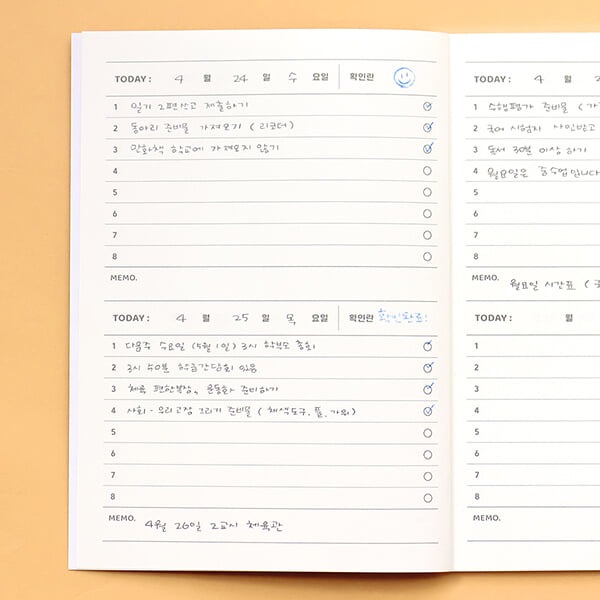 TODAY : 4 월 24 일 수 요일 확인란
1 일기 2편쓰고 제출하기
2 동아리 준비물 가져오기 (리코더)
3 만화책 학교에 가져오지 않기
4
5
6
7
8
MEMO.
TODAY : 4 월 25 일 목 요일 확인란 확인완료!
1 다음주 수요일 (5월 1일) 3시 학부모 총회
2 3시 50분 학급간담회 있음
3 체육 편한복장, 운동화 준비하기
4 사회 - 우리고장 그리기 준비물 ( 채색도구, 풀, 가위)
5
6
7
8
MEMO. 4월 26일 2교시 체육관
TODAY : 4 월 2
1 수행평가 준비물 (가
2 국어 시험지 사인받고
3 독서 30분 이상 하기
4 월요일은 단수업입니다
5
6
7
8
MEMO. 월요일 시간표 (
TODAY : 월
1
2
3
4
5
6
7
8
MEMO.